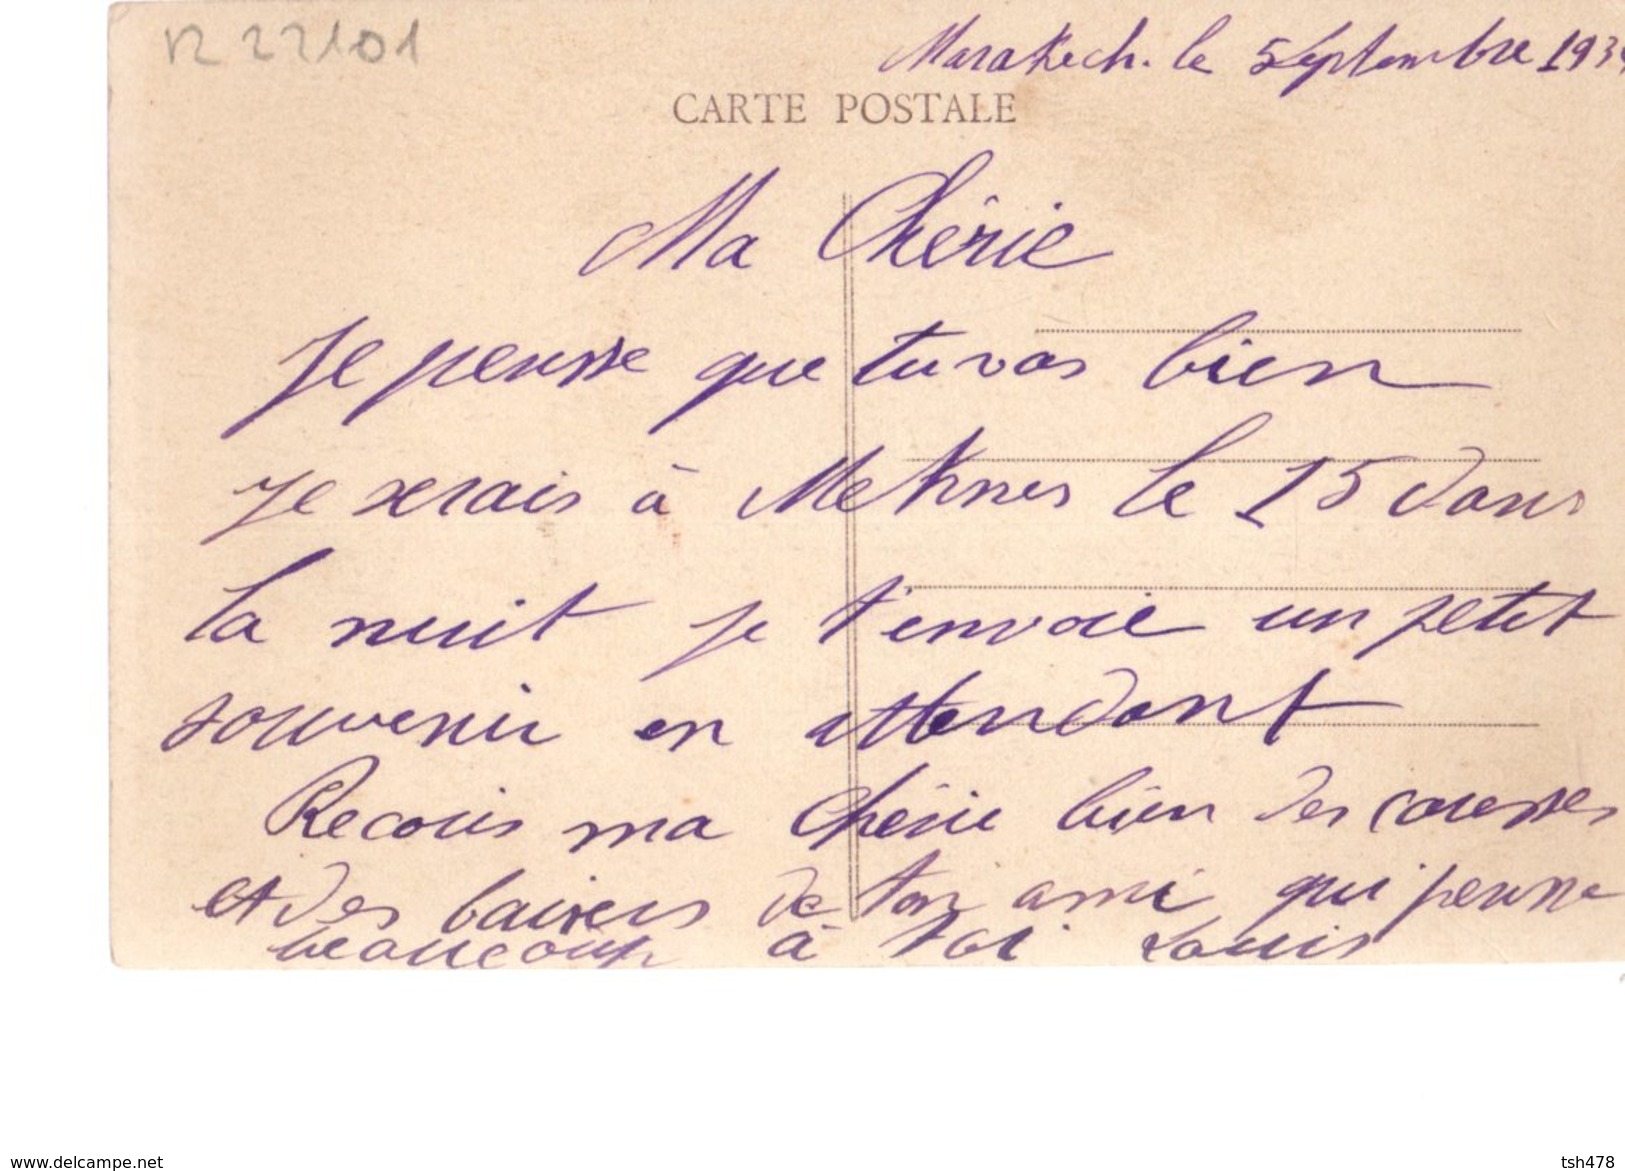 R 22101
Marakech. le 5 Septembre 193
CARTE POSTALE
Ma Chérie
Je pensse que tu vas bien
Je serais à Meknes le 15 dans
la nuit je t'envoie un petit
souvenir en attendant
Recois ma Chérie bien des caresses
et des baisers de ton ami qui pensse
beaucoup à toi Louis
www.delcampe.net
tsh478